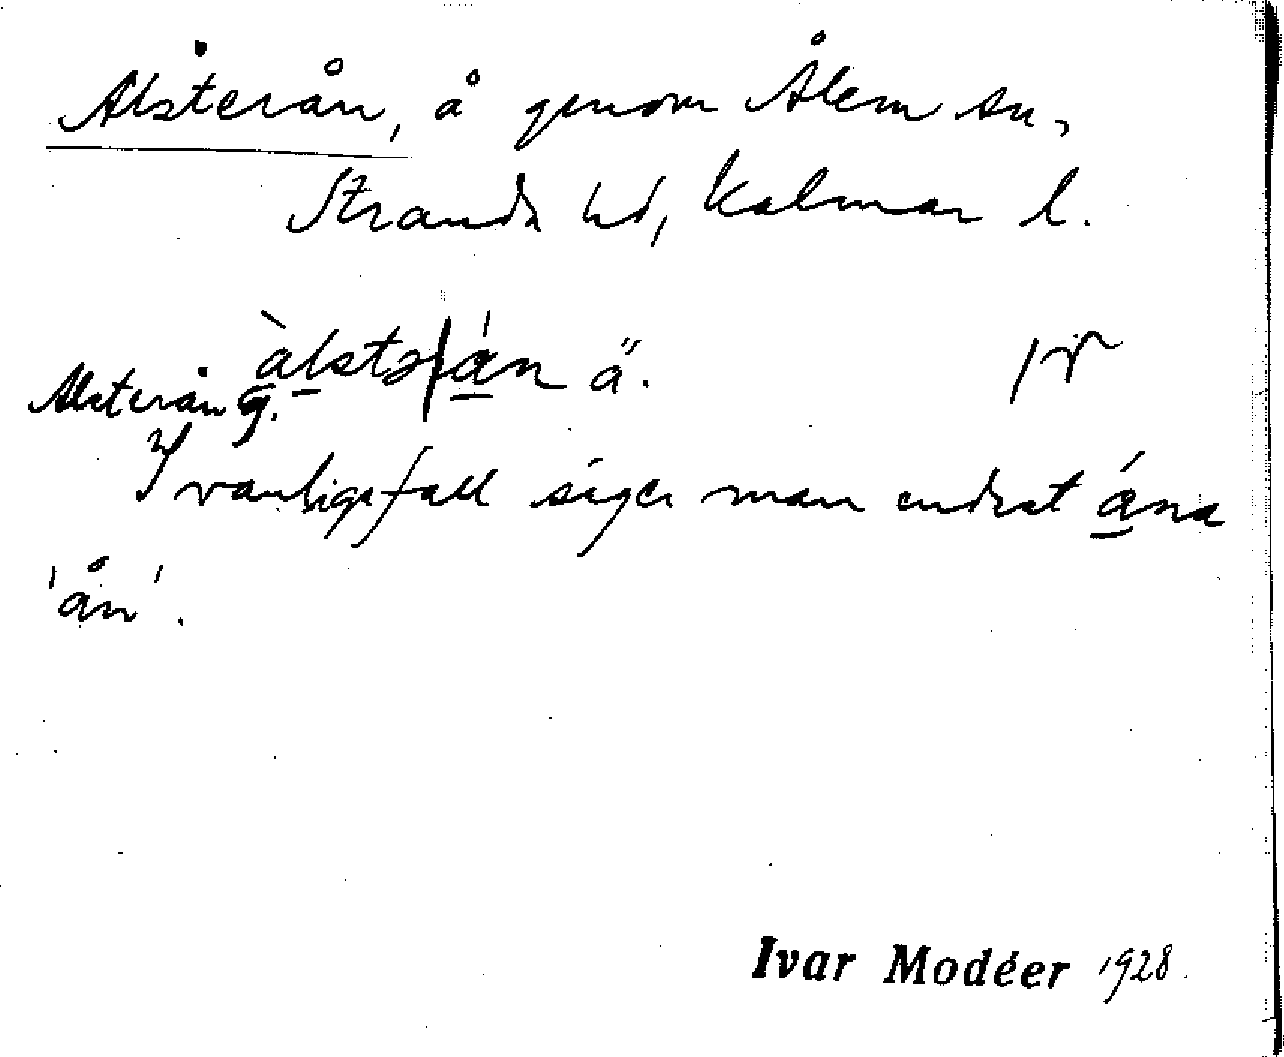 Alsterån, å genom Ålem sn,
Stranda hd, Kalmar l.
àlstər|án ä.
Alsterån g.
I vanliga fall säger man endast ána
'ån'.
Ivar Modéer 1928.